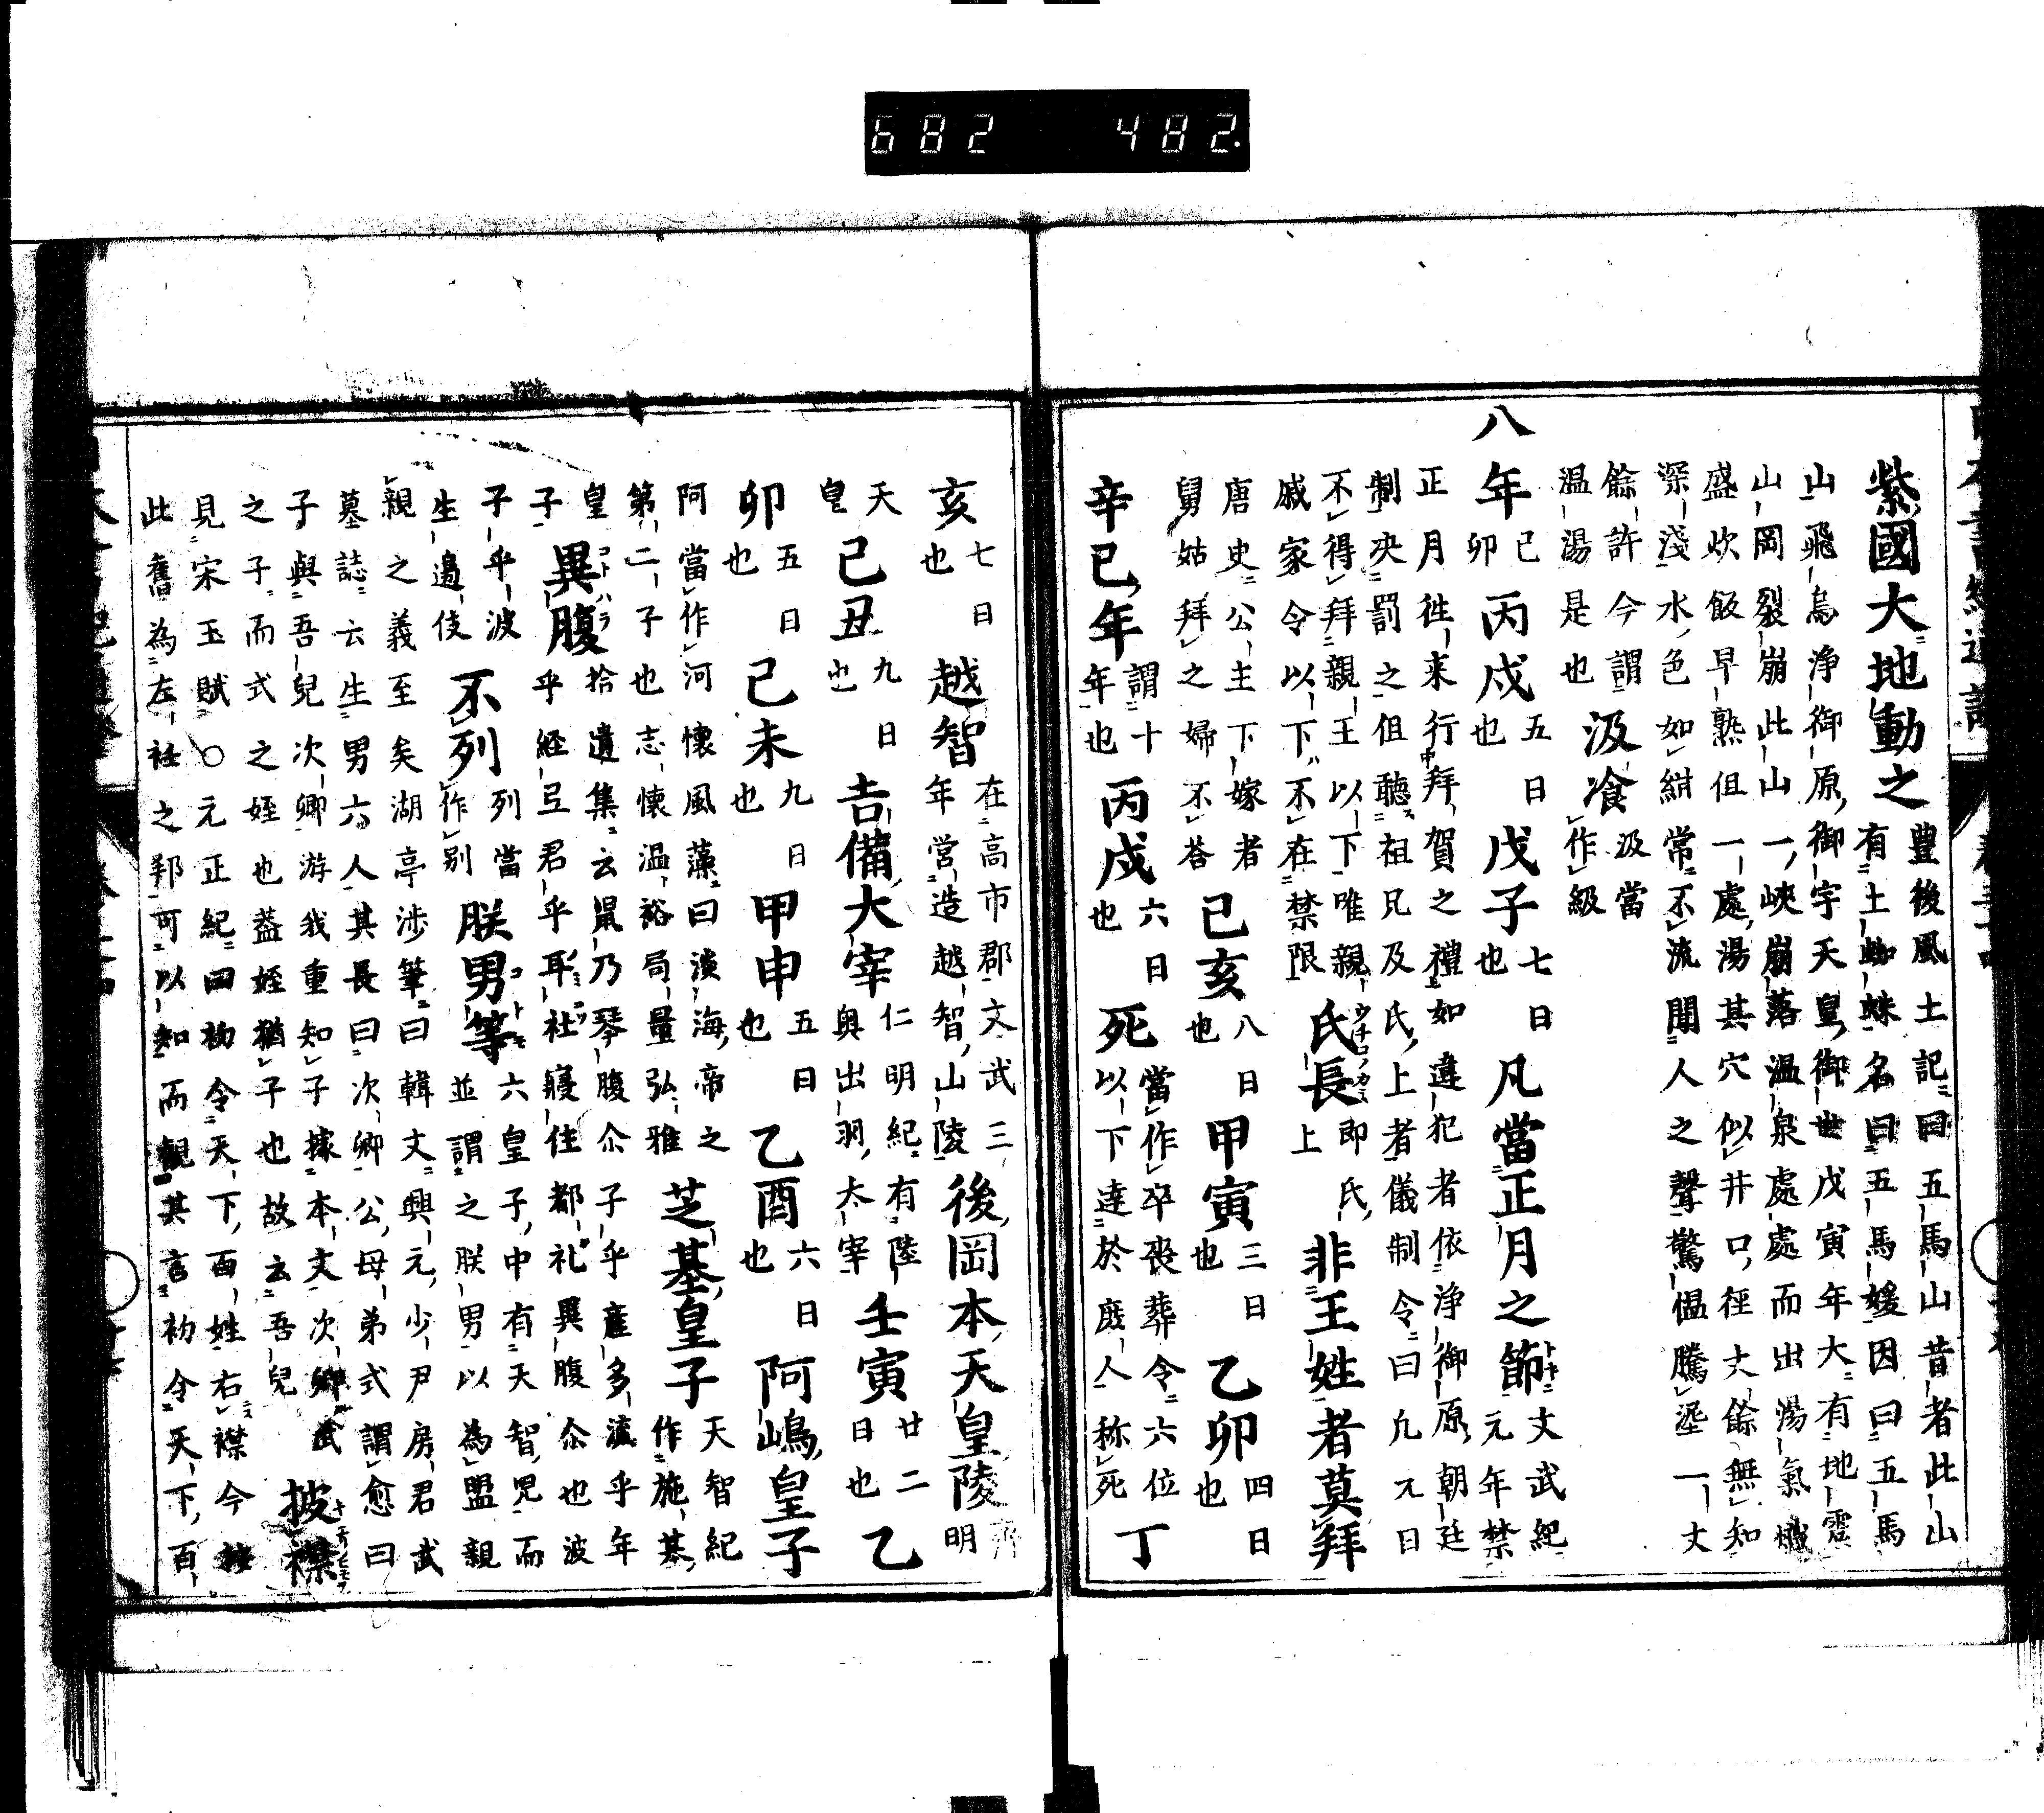 682 482.
紫國大地動之 豊後風土記曰五馬山昔者此山
有土蜘蛛名曰五馬媛因曰五馬
山飛鳥浄御原御宇天皇御世戊寅年大有地震
山岡裂崩此山一峽崩落温泉處處而出湯氣熾
盛炊飯早熟但一處湯其穴似井口徑丈餘無知
深淺水色如紺常不流聞人之聲驚慍騰埿一丈
餘許今謂
温湯是也
汲飡 汲當
作級
八年 己
卯
丙戌 五日
也
戊子 七日
也
凡當正月之節 文武紀
元年禁
正月徃来行拜賀之禮如違犯者依浄御原朝廷
制决罰之但聽拜祖兄及氏上者儀制令曰凡元日
不得拜親王以下唯親
戚家令以下不在禁限
氏長 即氏
上
非王姓者莫拜
唐史公主下嫁者
舅姑拜之婦不荅
己亥 八日
也
甲寅 三日
也
乙卯 四日
也
辛巳年 謂十
年也
丙戌 六日
也
死 當作卒喪葬令六位
以下達於庶人称死
丁
亥 七日
也
越智 在高市郡文武三
年營造越智山陵
後岡本天皇陵 齊
明
天
皇
己丑 九日
也
吉備大宰 仁明紀有陸
奥出羽太宰
壬寅 廿二
日也
乙
卯 五日
也
己未 九日
也
甲申 五日
也
乙酉 六日
也
阿嶋皇子
阿當作河懷風藻曰淡海帝之
第二子也志懷温裕局量弘雅
芝基皇子 天智紀
作施基
皇
子
異腹 拾遺集云鼠乃琴腹尒子乎産多
乎經豆君乎耳社寢住都礼異腹尒也波
子乎波
生邉伎
不列 列當
作别
朕男等 六皇子中有天智児而
並謂之朕男以為盟親
親之義至矣湖亭渉筆曰韓文興元少尹房君武
墓誌云生男六人其長曰次卿公母弟式謂愈曰
子與吾兒次卿游我重知子據本文次卿武
之子而式之姪也葢姪猶子也故云吾兒
披襟
見宋玉賦○元正紀曰初令天下百姓右襟今
此舊為左衽之邦可以知而觀其言初令天下百